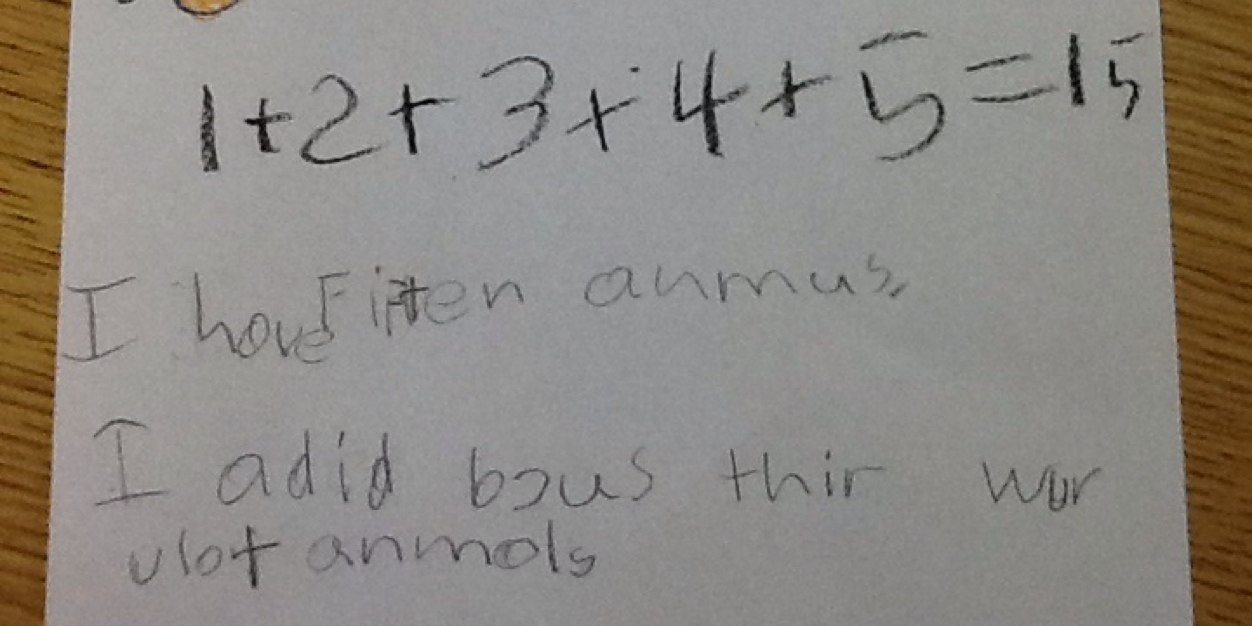 1+2+3+4+5=15
I hove Fiften anmus.
I adid bcus thir wur
ulot anmols